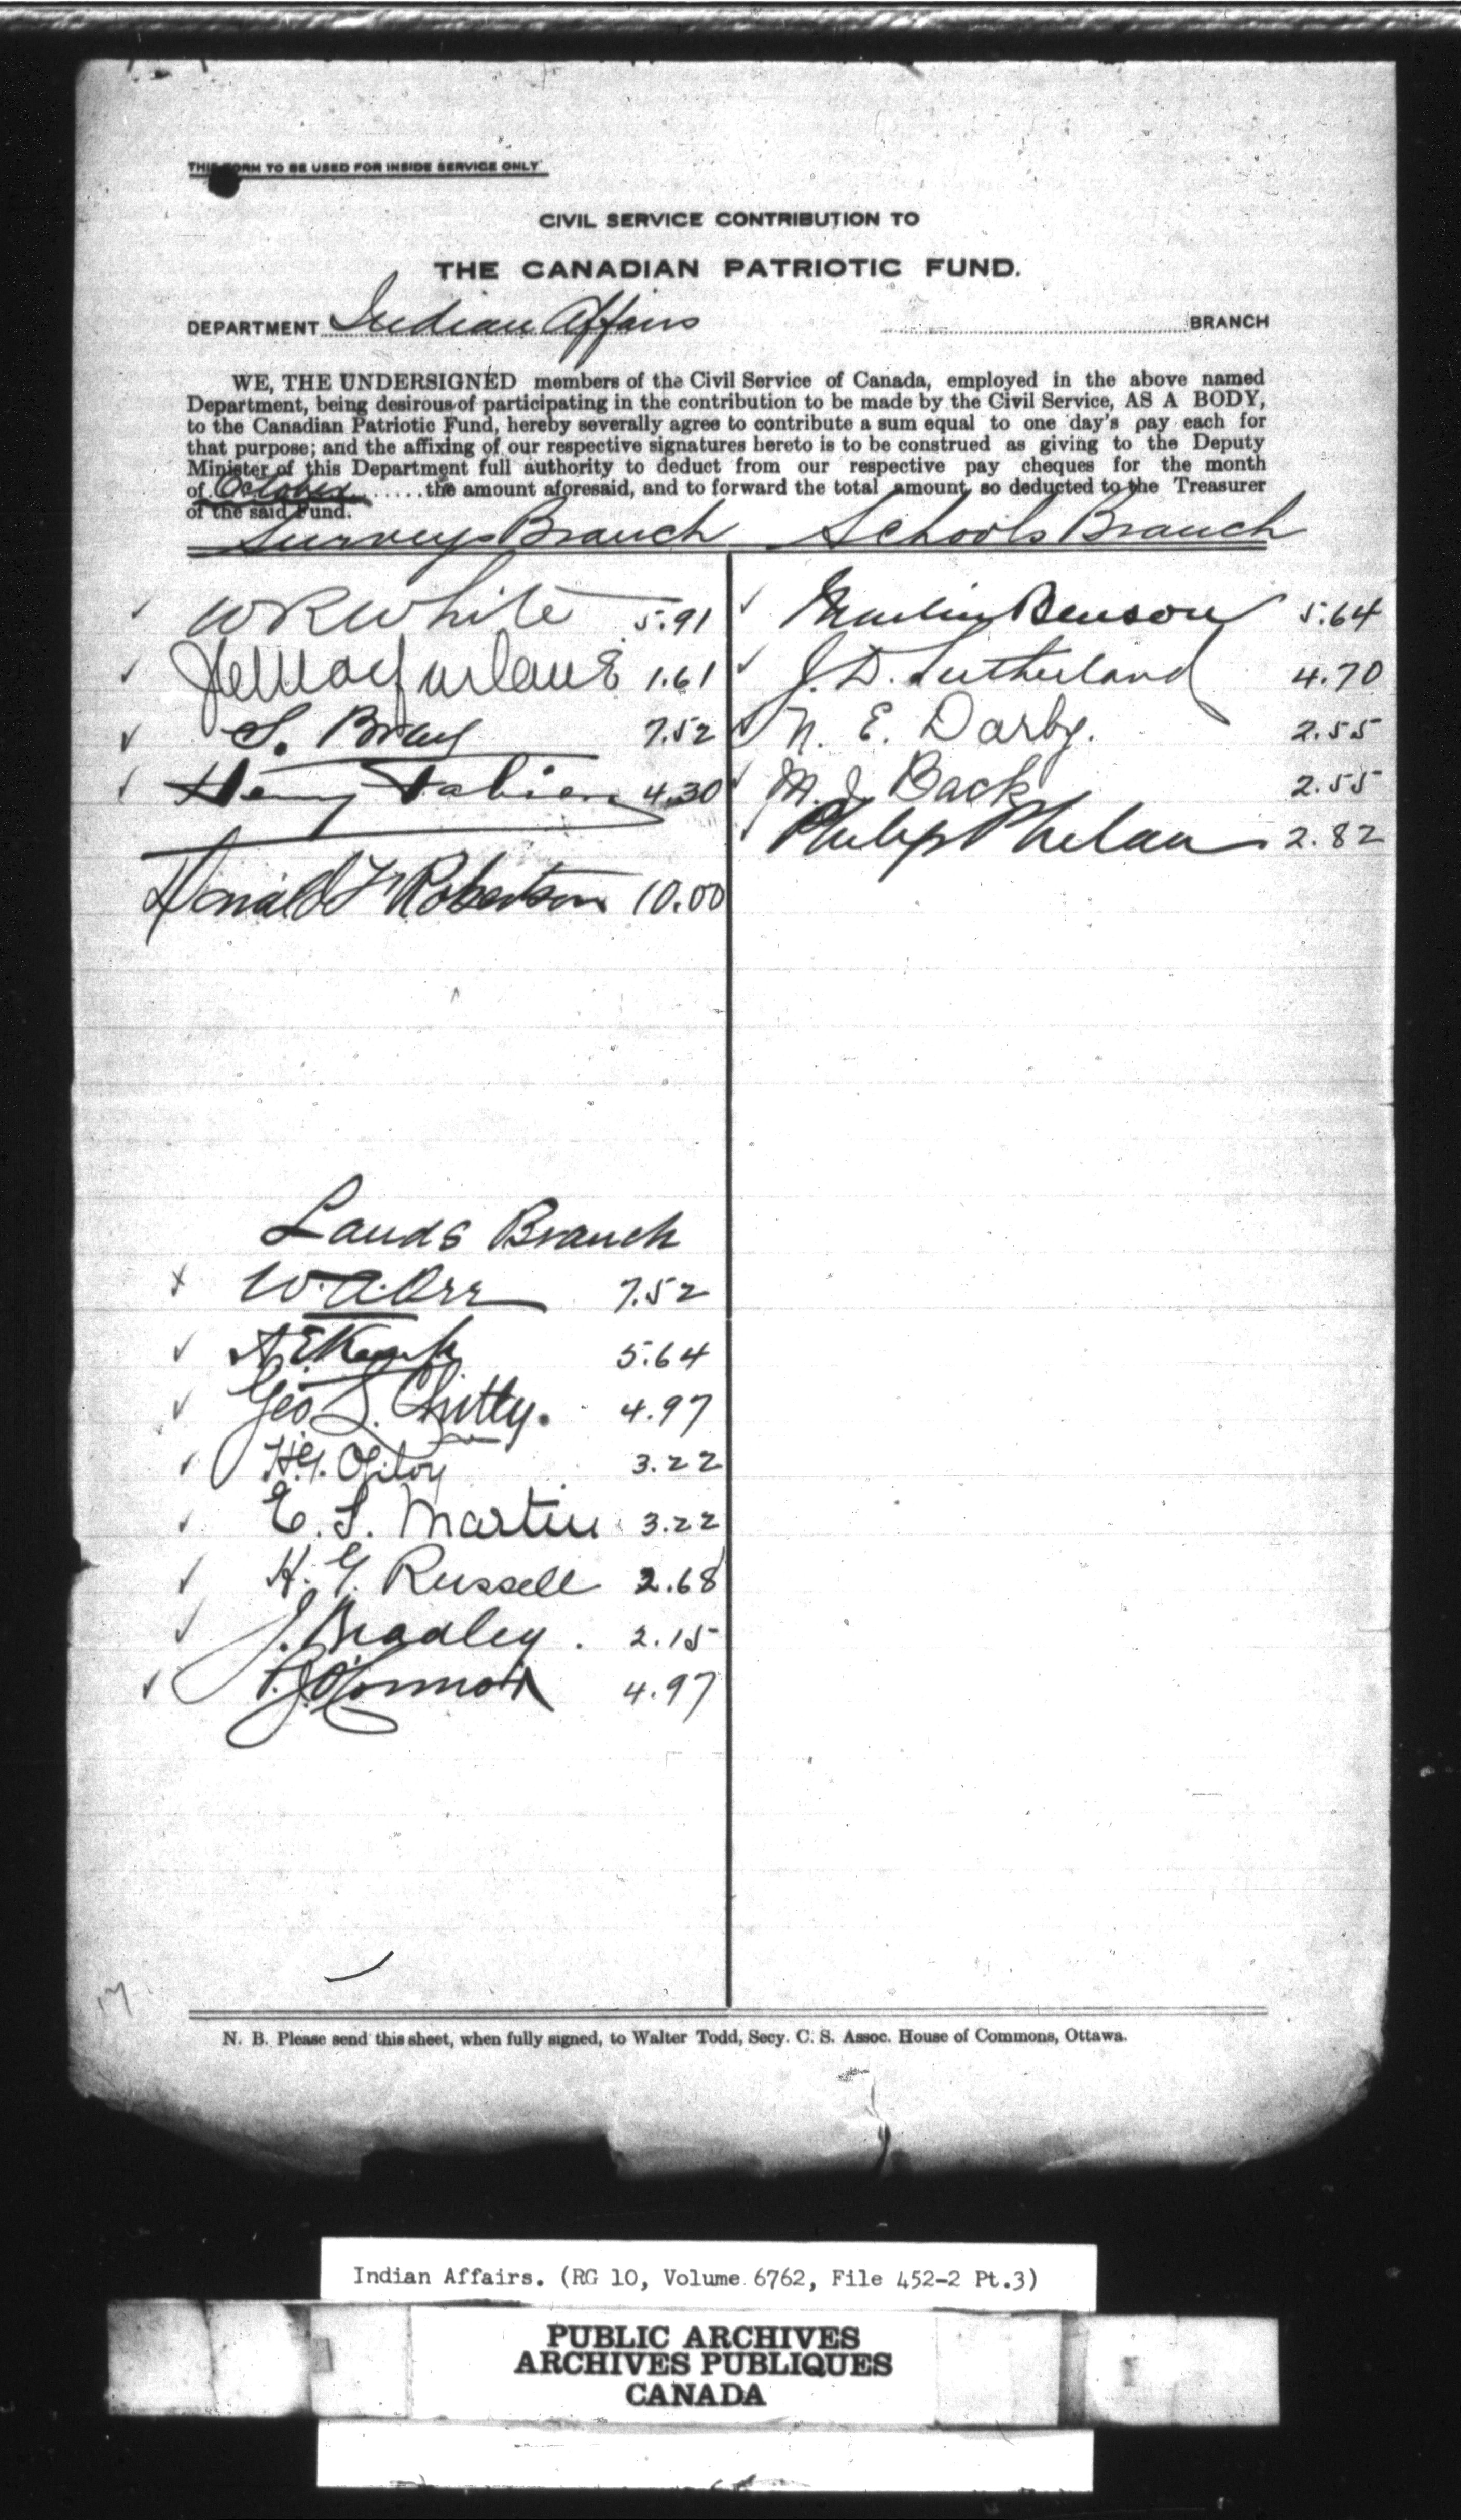 THIS FORM TO BE USED FOR INSIDE SERVICE ONLY
CIVIL SERVICE CONTRIBUTION TO
THE CANADIAN PATRIOTIC FUND.
DEPARTMENT Indian Affairs BRANCH
WE, THE UNDERSIGNED members of the Civil Service of Canada, employed in the above named
Department, being desirous of participating in the contribution to be made by the Civil Service, AS A BODY,
to the Canadian Patriotic Fund, hereby severally agree to contribute a sum equal to one day's pay each for
that purpose; and the affixing of our respective signatures hereto is to be construed as giving to the Deputy
Minister of this Department full authority to deduct from our respective pay cheques for the month
of October.....the amount aforesaid, and to forward the total amount so deducted to the Treasurer
of the said Fund.
Surveys Branch
✓ W R White 5.91
✓ Macfarlane 1.61
✓ S. Bray 7.52
✓ Henry Fabien 4.30
Donald F Robertson 10.00
Lands Branch
x W.A. Orr 7.52
✓ 5.64
✓ Geo L. Chitty. 4.97
✓ H.G. 3.22
✓ E. S. Martin 3.22
✓ H. G. Russell 2.68
✓ J. Bradley. 2.15
✓ P.J. O'Connor 4.97
Schools Branch
✓ Martin Benson 5.64
✓ J. D. Sutherland 4.70
✓ N. E. Darby. 2.55
✓ M. J. Back 2.55
✓ Philip Phelan 2.82
N. B. Please send this sheet, when fully signed, to Walter Todd, Secy. C. S. Assoc. House of Commons, Ottawa.
Indian Affairs. (RG 10, Volume 6762, File 452-2 Pt.3)
PUBLIC ARCHIVES
ARCHIVES PUBLIQUES
CANADA